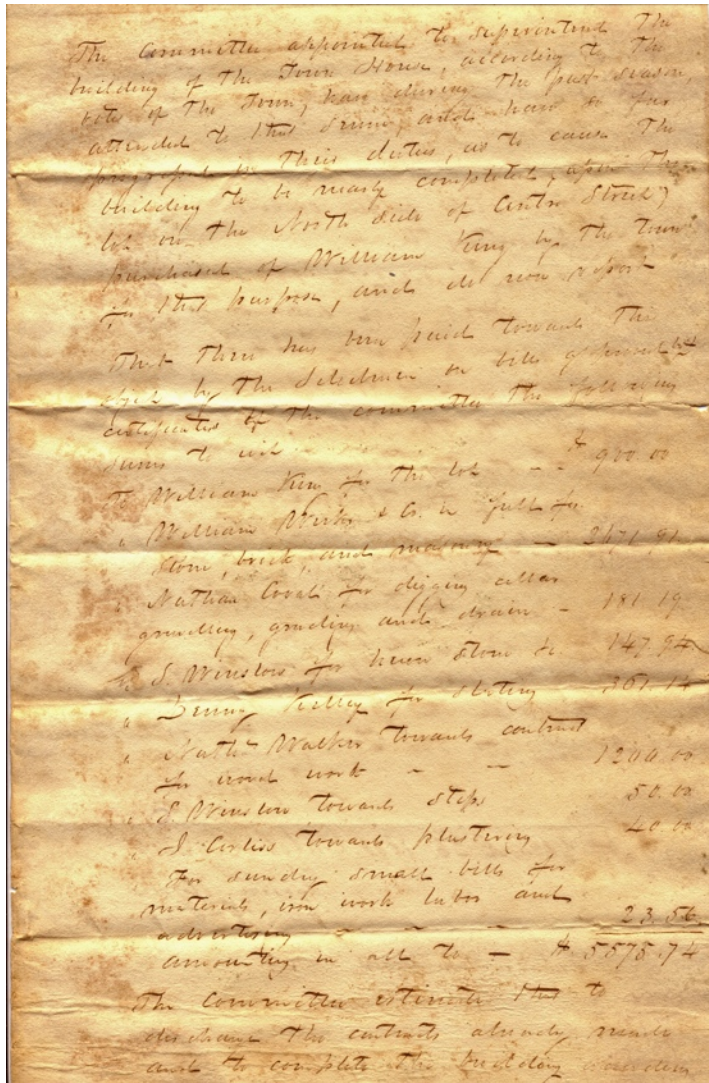 The Committee appointed to superintend the
building of the Town House, according to the
vote of the Town, have during the past season,
attended to that service, and have so far
progressed in their duties, as to cause the
building to be nearly completed, upon the
lot on the North side of Centre Street,
purchased of William King by the town
for that purpose, and do now report
That there has been paid towards this
object by the Selectmen on bills approved by
certificates of the committee the following
sums to wit
To William King for the lot - - $ 900.00
" William Wicks & Co. in full for
stone, brick, and masonry - 2671.91
" Nathan Covel for digging cellar
gravelling, grading and drain - 181.19
" S. Winslow for hewn stone &c. 147.94
" Kelley for slating 361.14
" Nathl Walker towards contract
for wood work - - 1200.00
" S. Winslow towards steps 50.00
" J. Corliss towards plastering 40.00
For sundry small bills for
materials, iron work labor and
advertising - - - - 23.56
amounting in all to - $ 5575.74
The Committee estimate that to
discharge the contracts already made
and to complete the building